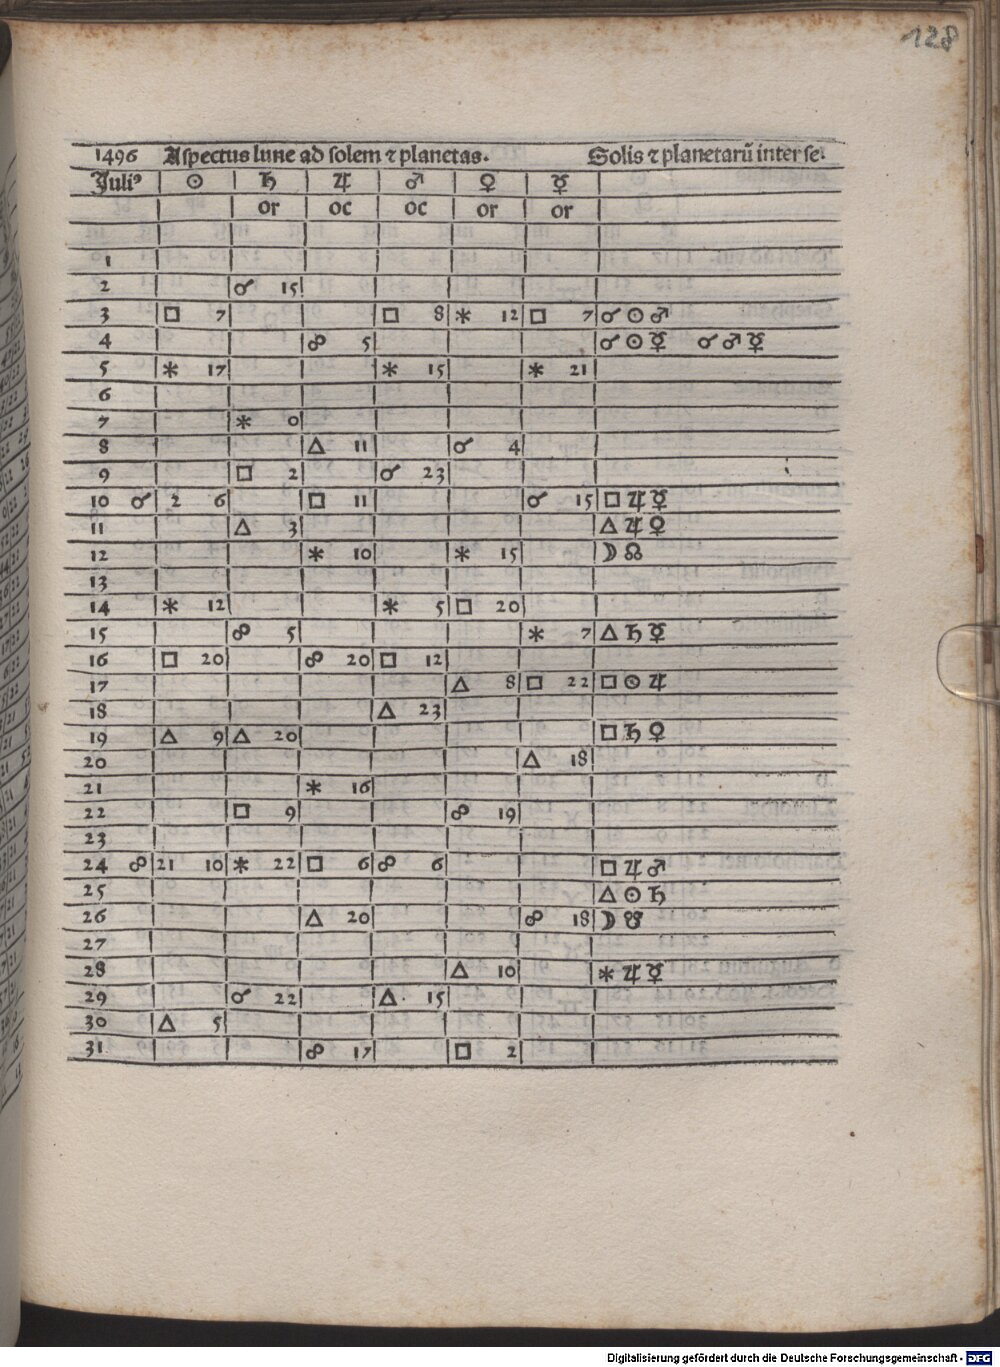 128
1496 Aspectus lune ad solem ⁊ planetas. Solis ⁊ planetarū inter se.
Juliꝰ ☉ ♄ ♃ ♂ ♀ ☿
or oc oc or or
1
2 ☌ 15
3 □ 7 □ 8 ⚹ 12 □ 7 ☌ ☉ ♂
4 ☍ 5 ☌ ☉ ☿ ☌ ♂ ☿
5 ⚹ 17 ⚹ 15 ⚹ 21
6
7 ⚹ 0
8 △ 11 ☌ 4
9 □ 2 ☌ 23
10 ☌ 2 6 □ 11 ☌ 15 □ ♃ ☿
11 △ 3 △ ♃ ♀
12 ⚹ 10 ⚹ 15 ☽ ☊
13
14 ⚹ 12 ⚹ 5 □ 20
15 ☍ 5 ⚹ 7 △ ♄ ☿
16 □ 20 ☍ 20 □ 12
17 △ 8 □ 22 □ ☉ ♃
18 △ 23
19 △ 9 △ 20 □ ♄ ♀
20 △ 18
21 ⚹ 16
22 □ 9 ☍ 19
23
24 ☍ 21 10 ⚹ 22 □ 6 ☍ 6 □ ♃ ♂
25 △ ☉ ♄
26 △ 20 ☍ 18 ☽ ☋
27
28 △ 10 ⚹ ♃ ☿
29 ☌ 22 △ 15
30 △ 5
31 ☍ 17 □ 2
Digitalisierung gefördert durch die Deutsche Forschungsgemeinschaft - DFG